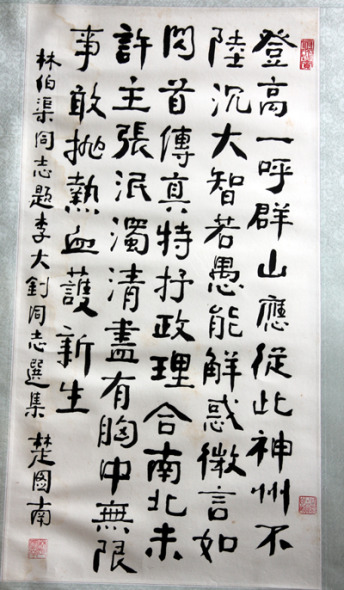 登高一呼群山應從此神州不
陸沉大智若愚能解惑微言如
閃首傳真特抒政理合南北未
許主張泯濁清盡有胸中無限
事敢拋熱血護新生
林伯渠同志題李大釗同志選集 楚图南